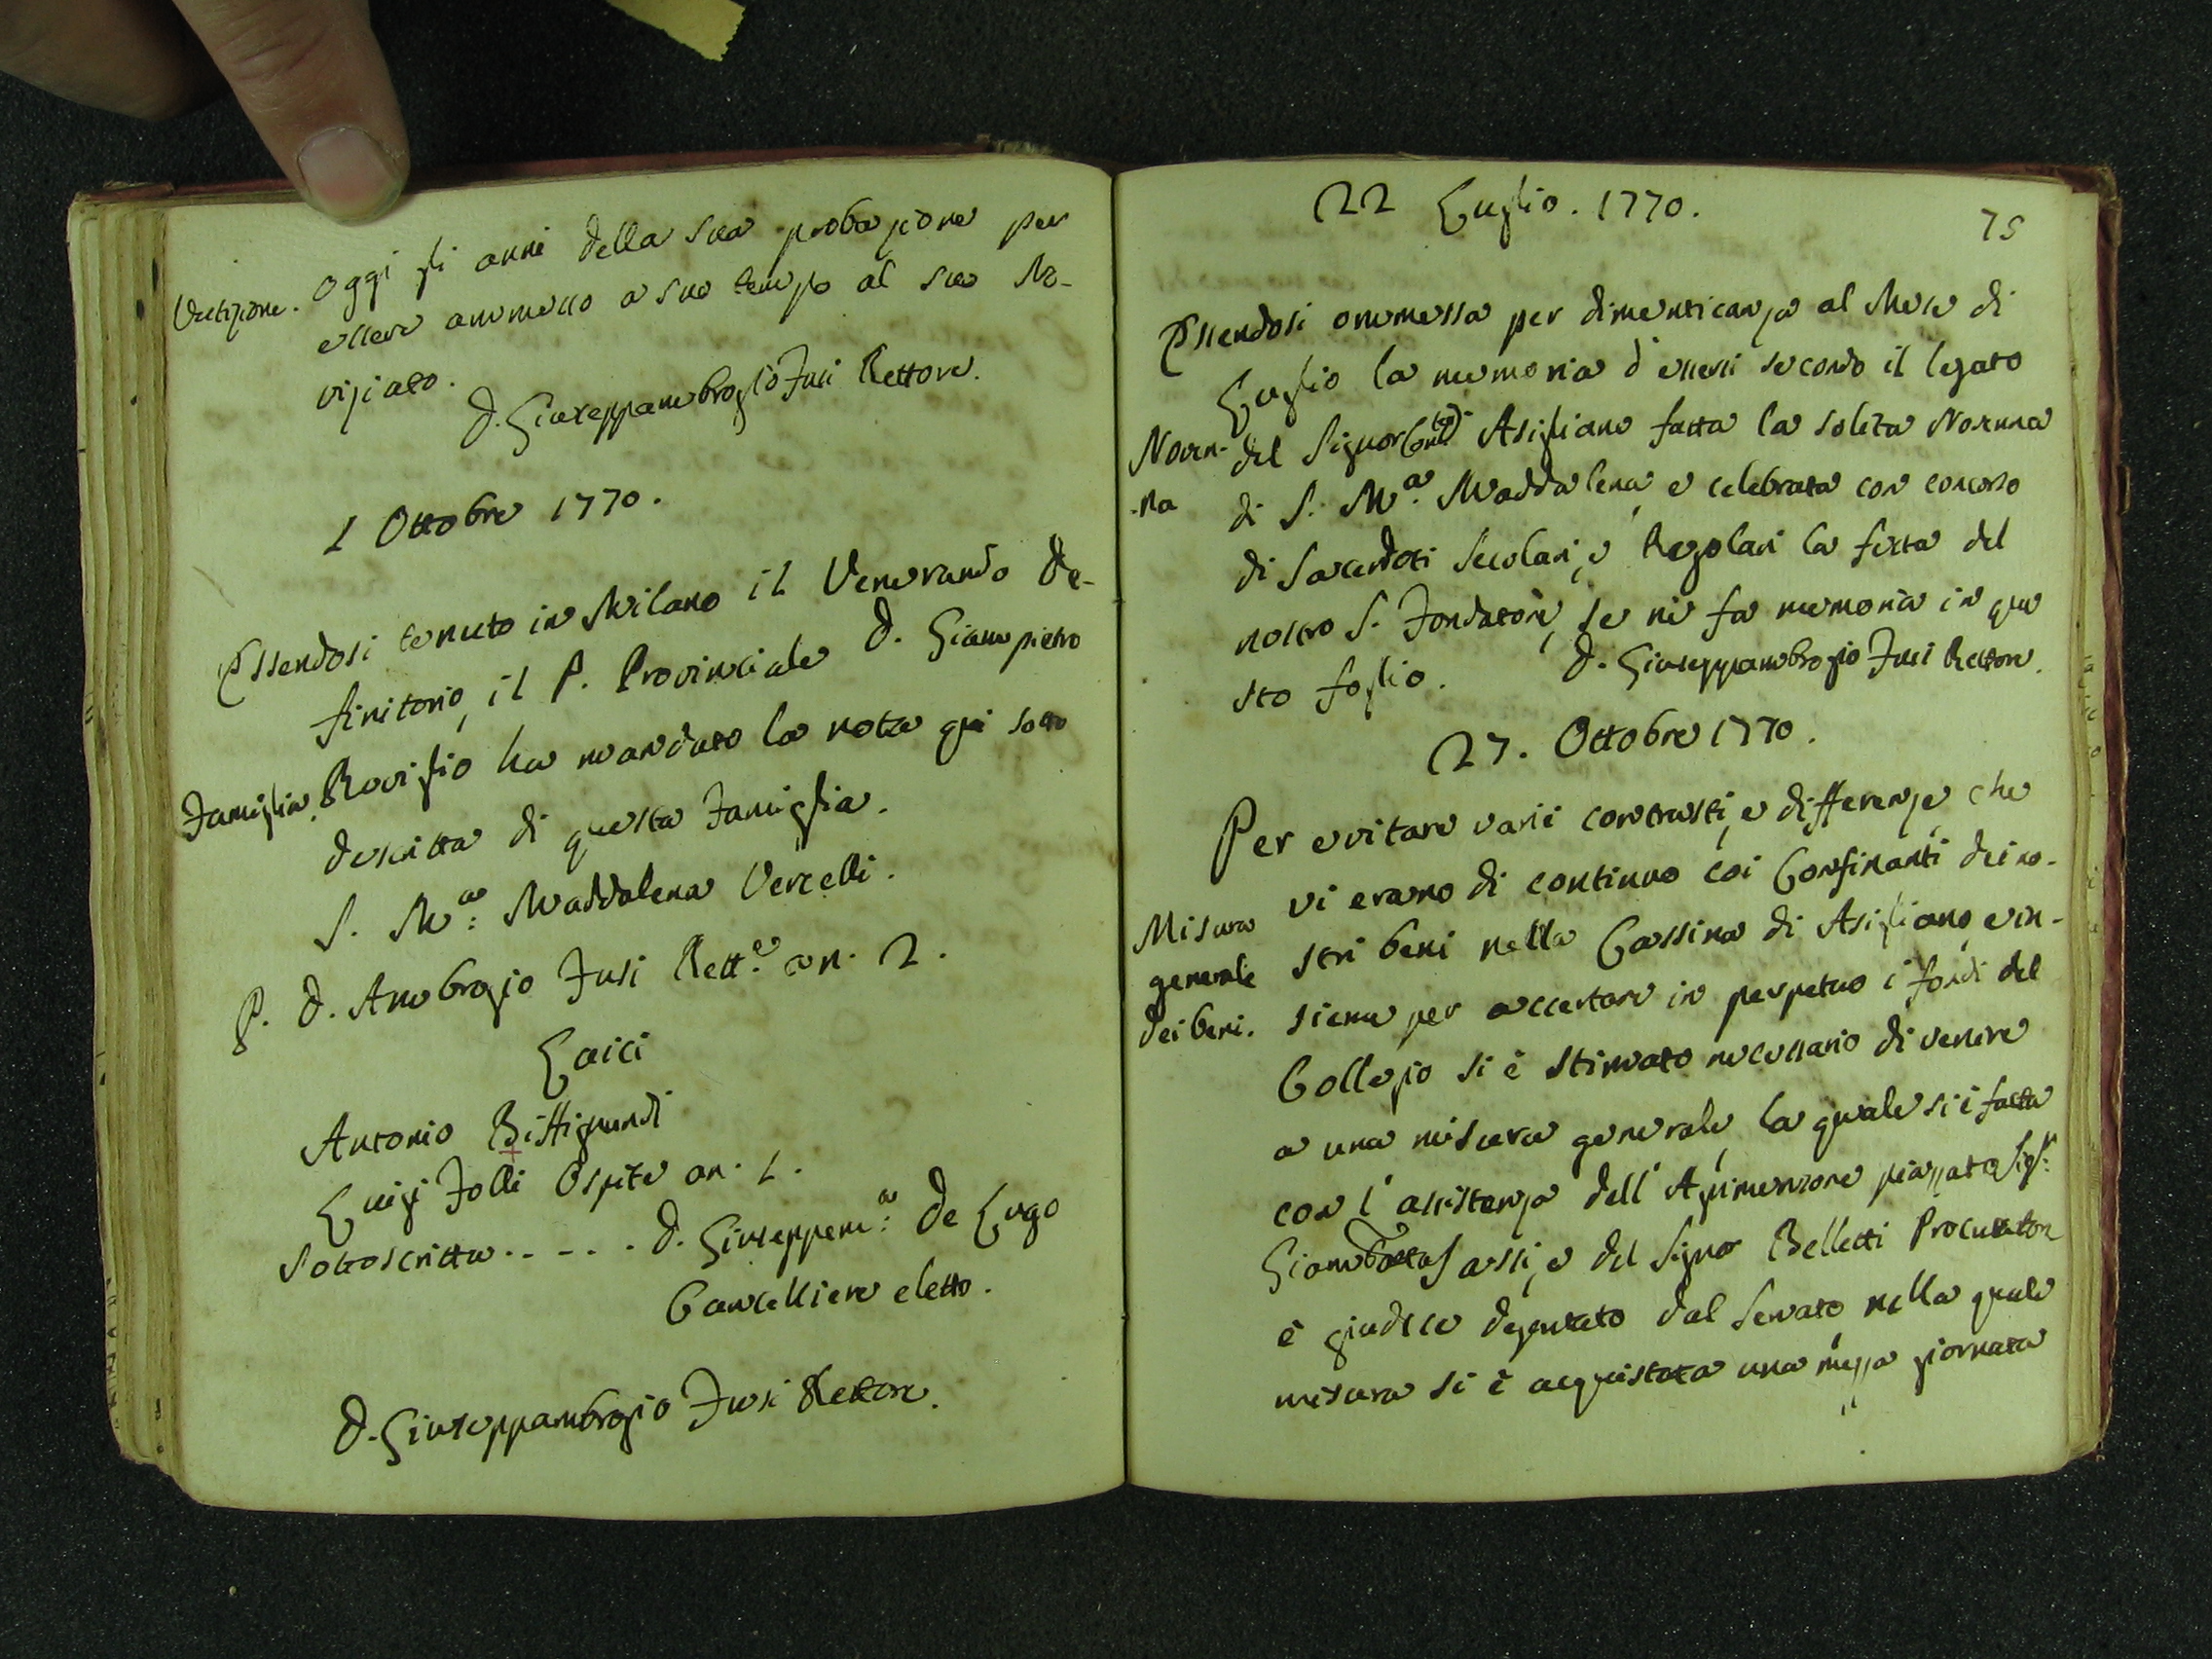 Oggi gli anni della sua probazione per
Vestizione. essere ammesso a suo tempo al suo No-
viziato.
D. Giuseppambrogio Fusi Rettore.
1 Ottobre 1770.
Essendosi tenuto in Milano il Venerando De-
finitorio, il P. Provinciale D. Giampietro
Famiglia. Roviglio ha mandato la nota qui sotto
descritta di questa Famiglia.
S. Mª: Maddalena Vercelli.
P. D. Ambrogio Fusi Rettᵉ: an. 2.
Laici
Antonio
Luigi Folli Ospite an. 1.
Sottoscritta . . - - . . D. Giuseppemª: De Lugo
Cancelliere eletto.
D. Giuseppambrogio Fusi Rettore.
22 Luglio. 1770.
75
Essendosi ommessa per dimenticanza al Mese di
Luglio la memoria d'essersi secondo il legato
Noven- del Signor Asigliano fatta la solita Novena
-na di S. Mª: Maddalena, e celebrata con concorso
di Sacerdoti Secolari, e Regolari la festa del
nostro S. Fondatore, se ne fa memoria in que
sto foglio. D. Giuseppambrogio Fusi Rettore.
27. Ottobre 1770.
Per evitare varii contrasti, e differenze, che
vi erano di continuo coi Confinanti dei no-
Misura stri beni nella Cassina di Asigliano, e in-
generale sieme per accertare in perpetuo i fondi del
dei beni. Collegio si è stimato necessario di venire
a una misura generale, la quale si è fatta
con l'assistenza dell'Agrimensore piazzato Sigʳ:
Giambatta Sassi, e del Signor Belletti Procurator
e giudice deputato dal Senato nella quale
misura si è acquistata una mezza giornata